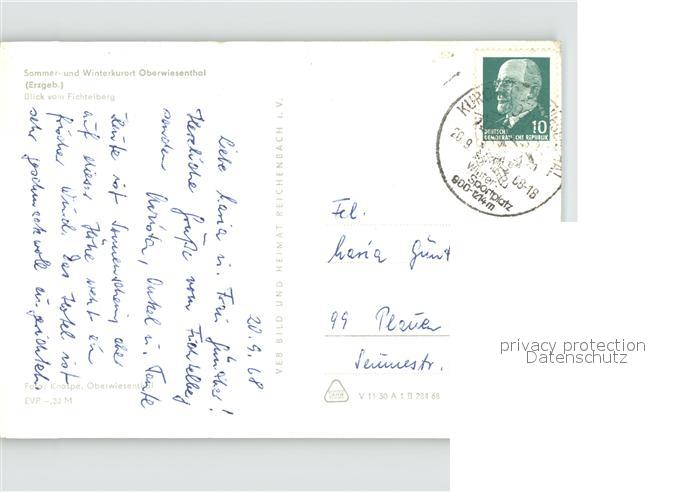 Sommer- und Winterkurort Oberwiesenthal
(Erzgeb.)
Blick vom Fichtelberg
20.9.68
Liebe Maria u. Frau Günther!
Herzliche Grüße vom Fichtelberg
senden Christa, Onkel u. Tante
Heute ist Sonnenschein, aber
auf dieser Höhe weht ein
frischer Wind. Das Hotel ist
sehr geschmackvoll eingerichtet.
Foto: Knospe, Oberwiesenthal
EVP -,20 M
VEB BILD UND HEIMAT REICHENBACH i. V.
DEUTSCHE
DEMOKRATISCHE REPUBLIK
10
KUR
THAL
20.9.
68-18
Winter
Sportplatz
900-1214m
Frl.
Maria Günt
99 Plauen
Seumestr.
V 11 30 A 1 B 284 68
privacy protection
Datenschutz